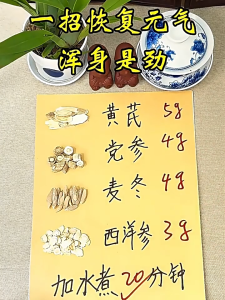 一招恢复元气
浑身是劲
黄芪 5g
党参 4g
麦冬 4g
西洋参 3g
加水煮20分钟